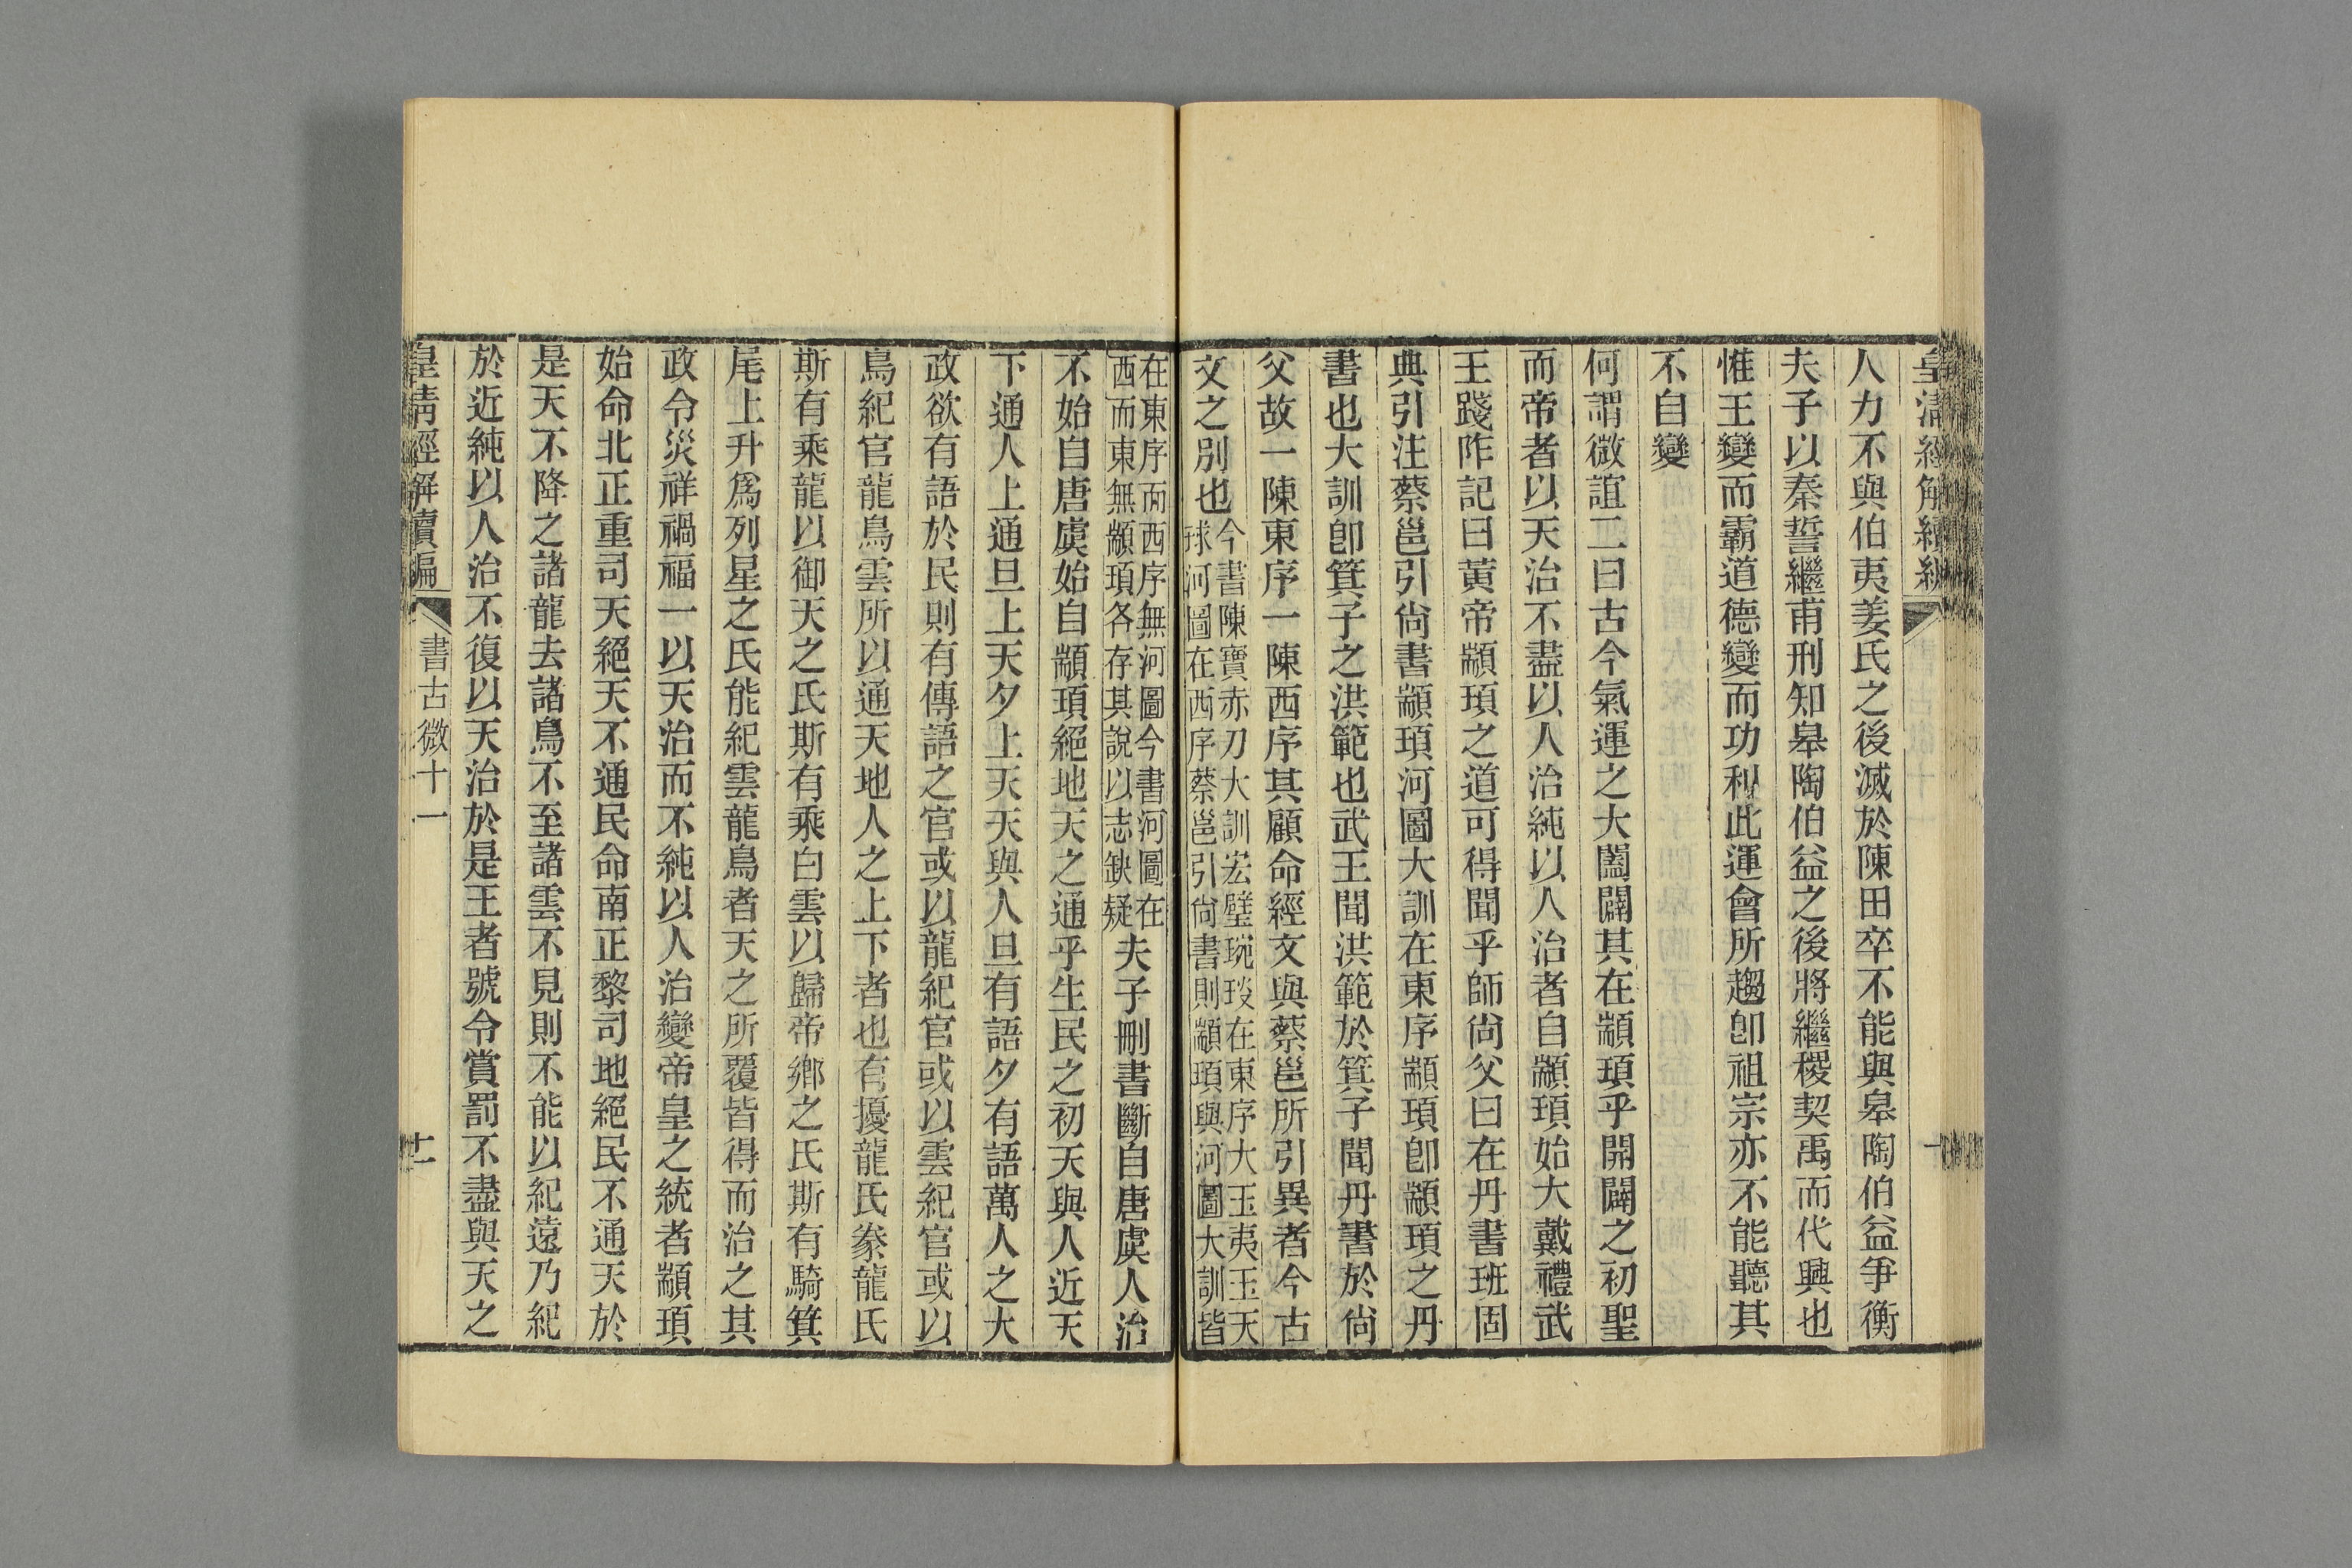 皇清經解續編
人力不與伯夷姜氏之後滅於陳田卒不能與皋陶伯益爭衡
夫子以秦誓繼甫刑知皋陶伯益之後將繼稷契禹而代興也
惟王變而霸道德變而功利此運會所趨卽祖宗亦不能聽其
不自變
何謂微誼二曰古今氣運之大闔闢其在顓頊乎開闢之初聖
而帝者以天治不盡以人治純以人治者自顓頊始大戴禮武
王踐阼記曰黃帝顓頊之道可得聞乎師尙父曰在丹書班固
典引注蔡邕引尙書顓頊河圖大訓在東序顓頊卽顓頊之丹
書也大訓卽箕子之洪範也武王聞洪範於箕子聞丹書於尙
父故一陳東序一陳西序其顧命經文與蔡邕所引異者今古
文之別也
今書陳寶赤刀大訓宏璧琬琰在東序大玉夷玉天
球河圖在西序蔡邕引尙書則顓頊與河圖大訓皆
在東序而西序無河圖今書河圖在
西而東無顓頊各存其說以志缺疑
夫子刪書斷自唐虞人治
不始自唐虞始自顓頊絕地天之通乎生民之初天與人近天
下通人上通旦上天夕上天天與人旦有語夕有語萬人之大
政欲有語於民則有傳語之官或以龍紀官或以雲紀官或以
鳥紀官龍鳥雲所以通天地人之上下者也有擾龍氏豢龍氏
斯有乘龍以御天之氏斯有乘白雲以歸帝鄉之氏斯有騎箕
尾上升爲列星之氏能紀雲龍鳥者天之所覆皆得而治之其
政令災祥禍福一以天治而不純以人治變帝皇之統者顓頊
始命北正重司天絕天不通民命南正黎司地絕民不通天於
是天不降之諸龍去諸鳥不至諸雲不見則不能以紀遠乃紀
於近純以人治不復以天治於是王者號令賞罰不盡與天之
皇清經解續編
書古微十一
十一